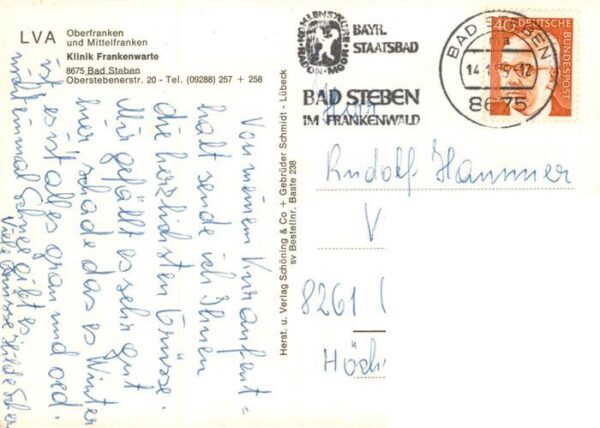 LVA
Oberfranken
und Mittelfranken
Klinik Frankenwarte
8675 Bad Steben
Oberstebenerstr. 20 - Tel. (09288) 257 + 258
Von meinem Kuraufent=
halt sende ich Ihnen
die herzlichsten Grüsse.
Mir gefällt es sehr gut
hier schade das es Winter
ist es ist alles grau und oed.
nicht einmal Schnee gibt es
Viele Grüsse Hilde
Herst. u. Verlag Schöning & Co + Gebrüder Schmidt - Lübeck
sv Bestellnr. Baste 238
BAYR.
STAATSBAD
BAD STEBEN
IM FRANKENWALD
BAD STEBEN
14.1
8675
40
DEUTSCHE
BUNDESPOST
Rudolf Hammer
V
8261
Höch